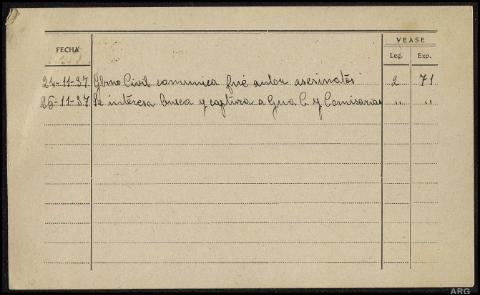 VEASE
FECHA Leg. Exp.
24-11-37 Gbno Civil comunica fué autor asesinatos 2 71
26-11-37 Se interesa busca y captura a Gua C. y Comisarias " "
ARG